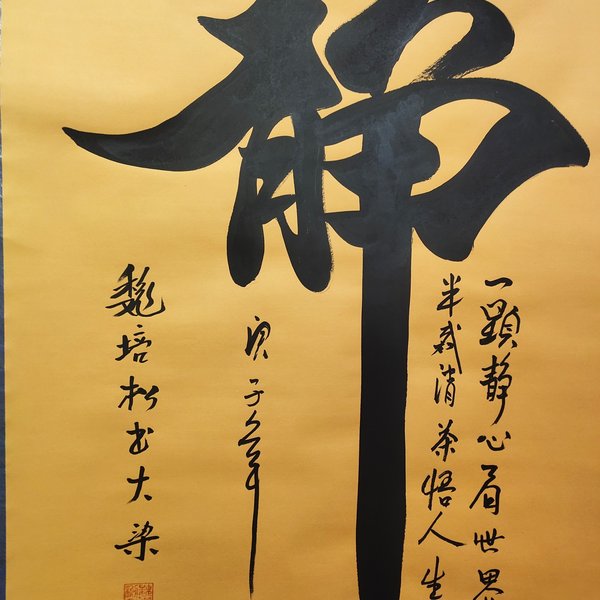 静
一顆静心看世界
半盞清茶悟人生
庚子年
魏培松书大梁